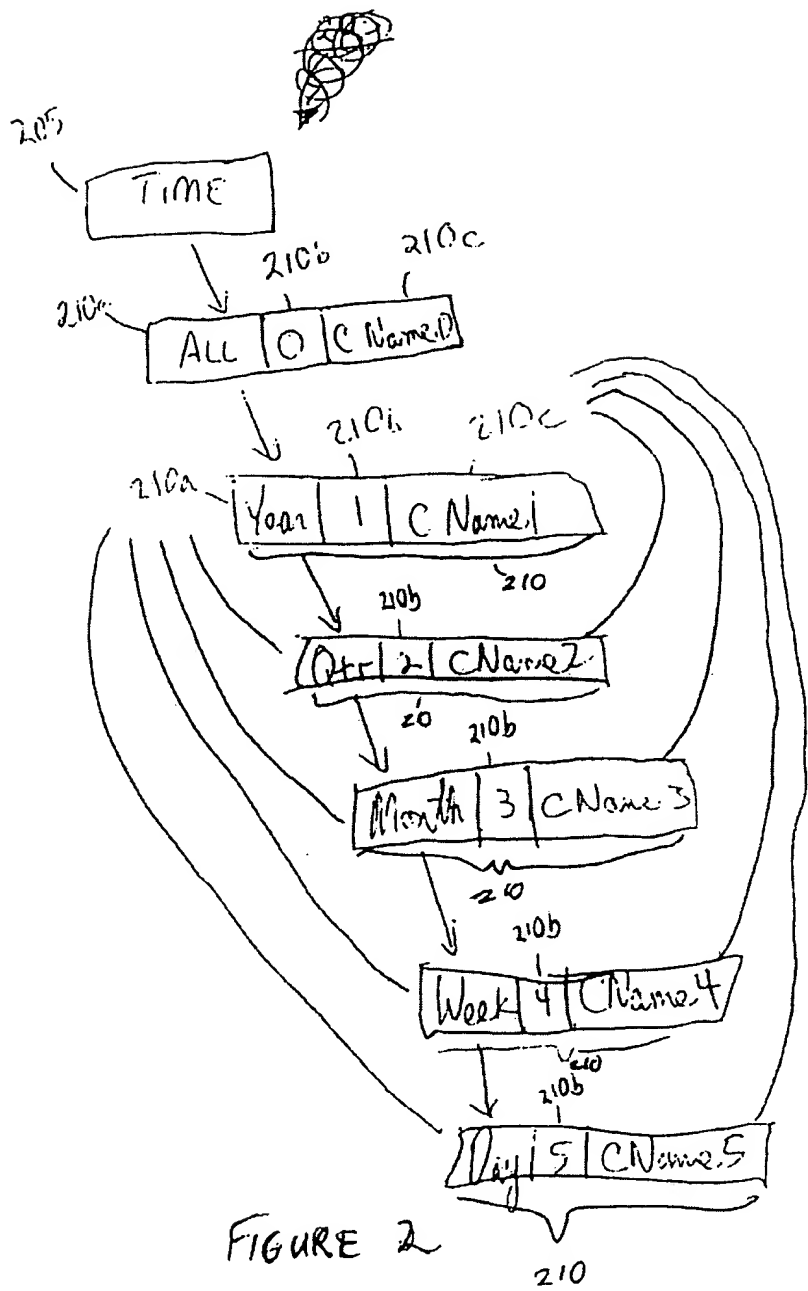 205
TIME
210b 210c
ALL 0 C Name.0
210b 210c
210a Year 1 C Name.1
210
210b
Qtr 2 CName2
20
210b
Month 3 CName.3
210
210b
Week 4 CName.4
210
210b
Day 5 CName.5
FIGURE 2
210